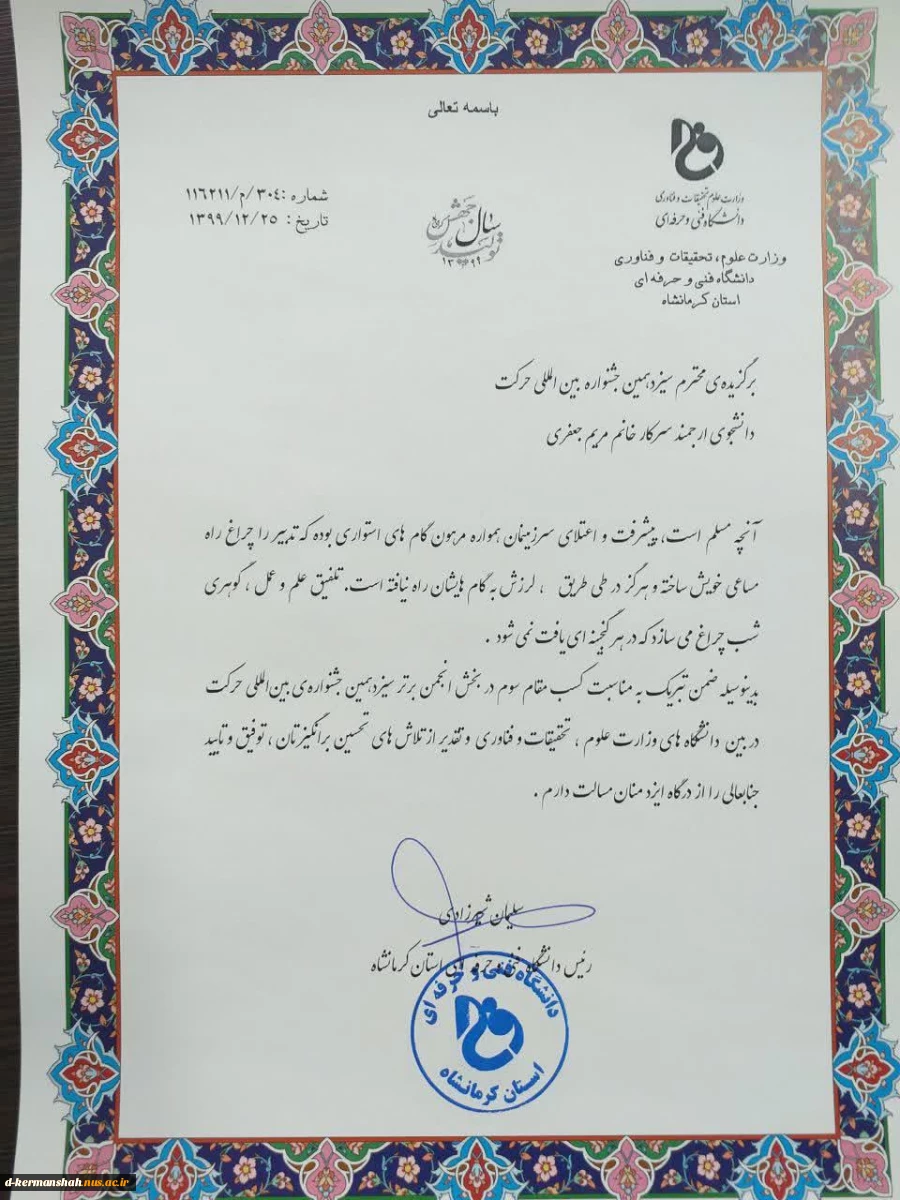 باسمه تعالی
وزارت علوم تحقیقات و فناوری
دانشگاه فنی و حرفه‌ای
وزارت علوم، تحقیقات و فناوری
دانشگاه فنی و حرفه ای
استان کرمانشاه
سال جهش تولید
۱۳۹۹
شماره :۳۰۴/م/۱۱۶۲۱۱
تاریخ : ۱۳۹۹/۱۲/۲۵
برگزیده‌ی محترم سیزدهمین جشنواره بین المللی حرکت
دانشجوی ارجمند سرکار خانم مریم جعفری
آنچه مسلم است، پیشرفت و اعتلای سرزمینمان همواره مرهون گام های استواری بوده که تدبیر را چراغ راه
مساعی خویش ساخته و هرگز در طی طریق ، لرزش به گام هایشان راه نیافته است. تلفیق علم و عمل ، گوهری
شب چراغ می سازد که در هر گنجینه ای یافت نمی شود .
بدینوسیله ضمن تبریک به مناسبت کسب مقام سوم در بخش انجمن برتر سیزدهمین جشنواره‌ی بین‌المللی حرکت
در بین دانشگاه های وزارت علوم ، تحقیقات و فناوری و تقدیر از تلاش های تحسین برانگیزتان ، توفیق و تایید
جنابعالی را از درگاه ایزد منان مسالت دارم .
سلیمان شیرزادی
رئیس دانشگاه فنی و حرفه ای استان کرمانشاه
دانشگاه فنی و حرفه ای
استان کرمانشاه
d-kermanshah.nus.ac.ir